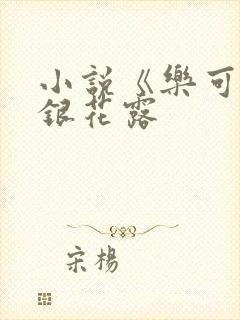 小說《樂可
銀花露
宋楊